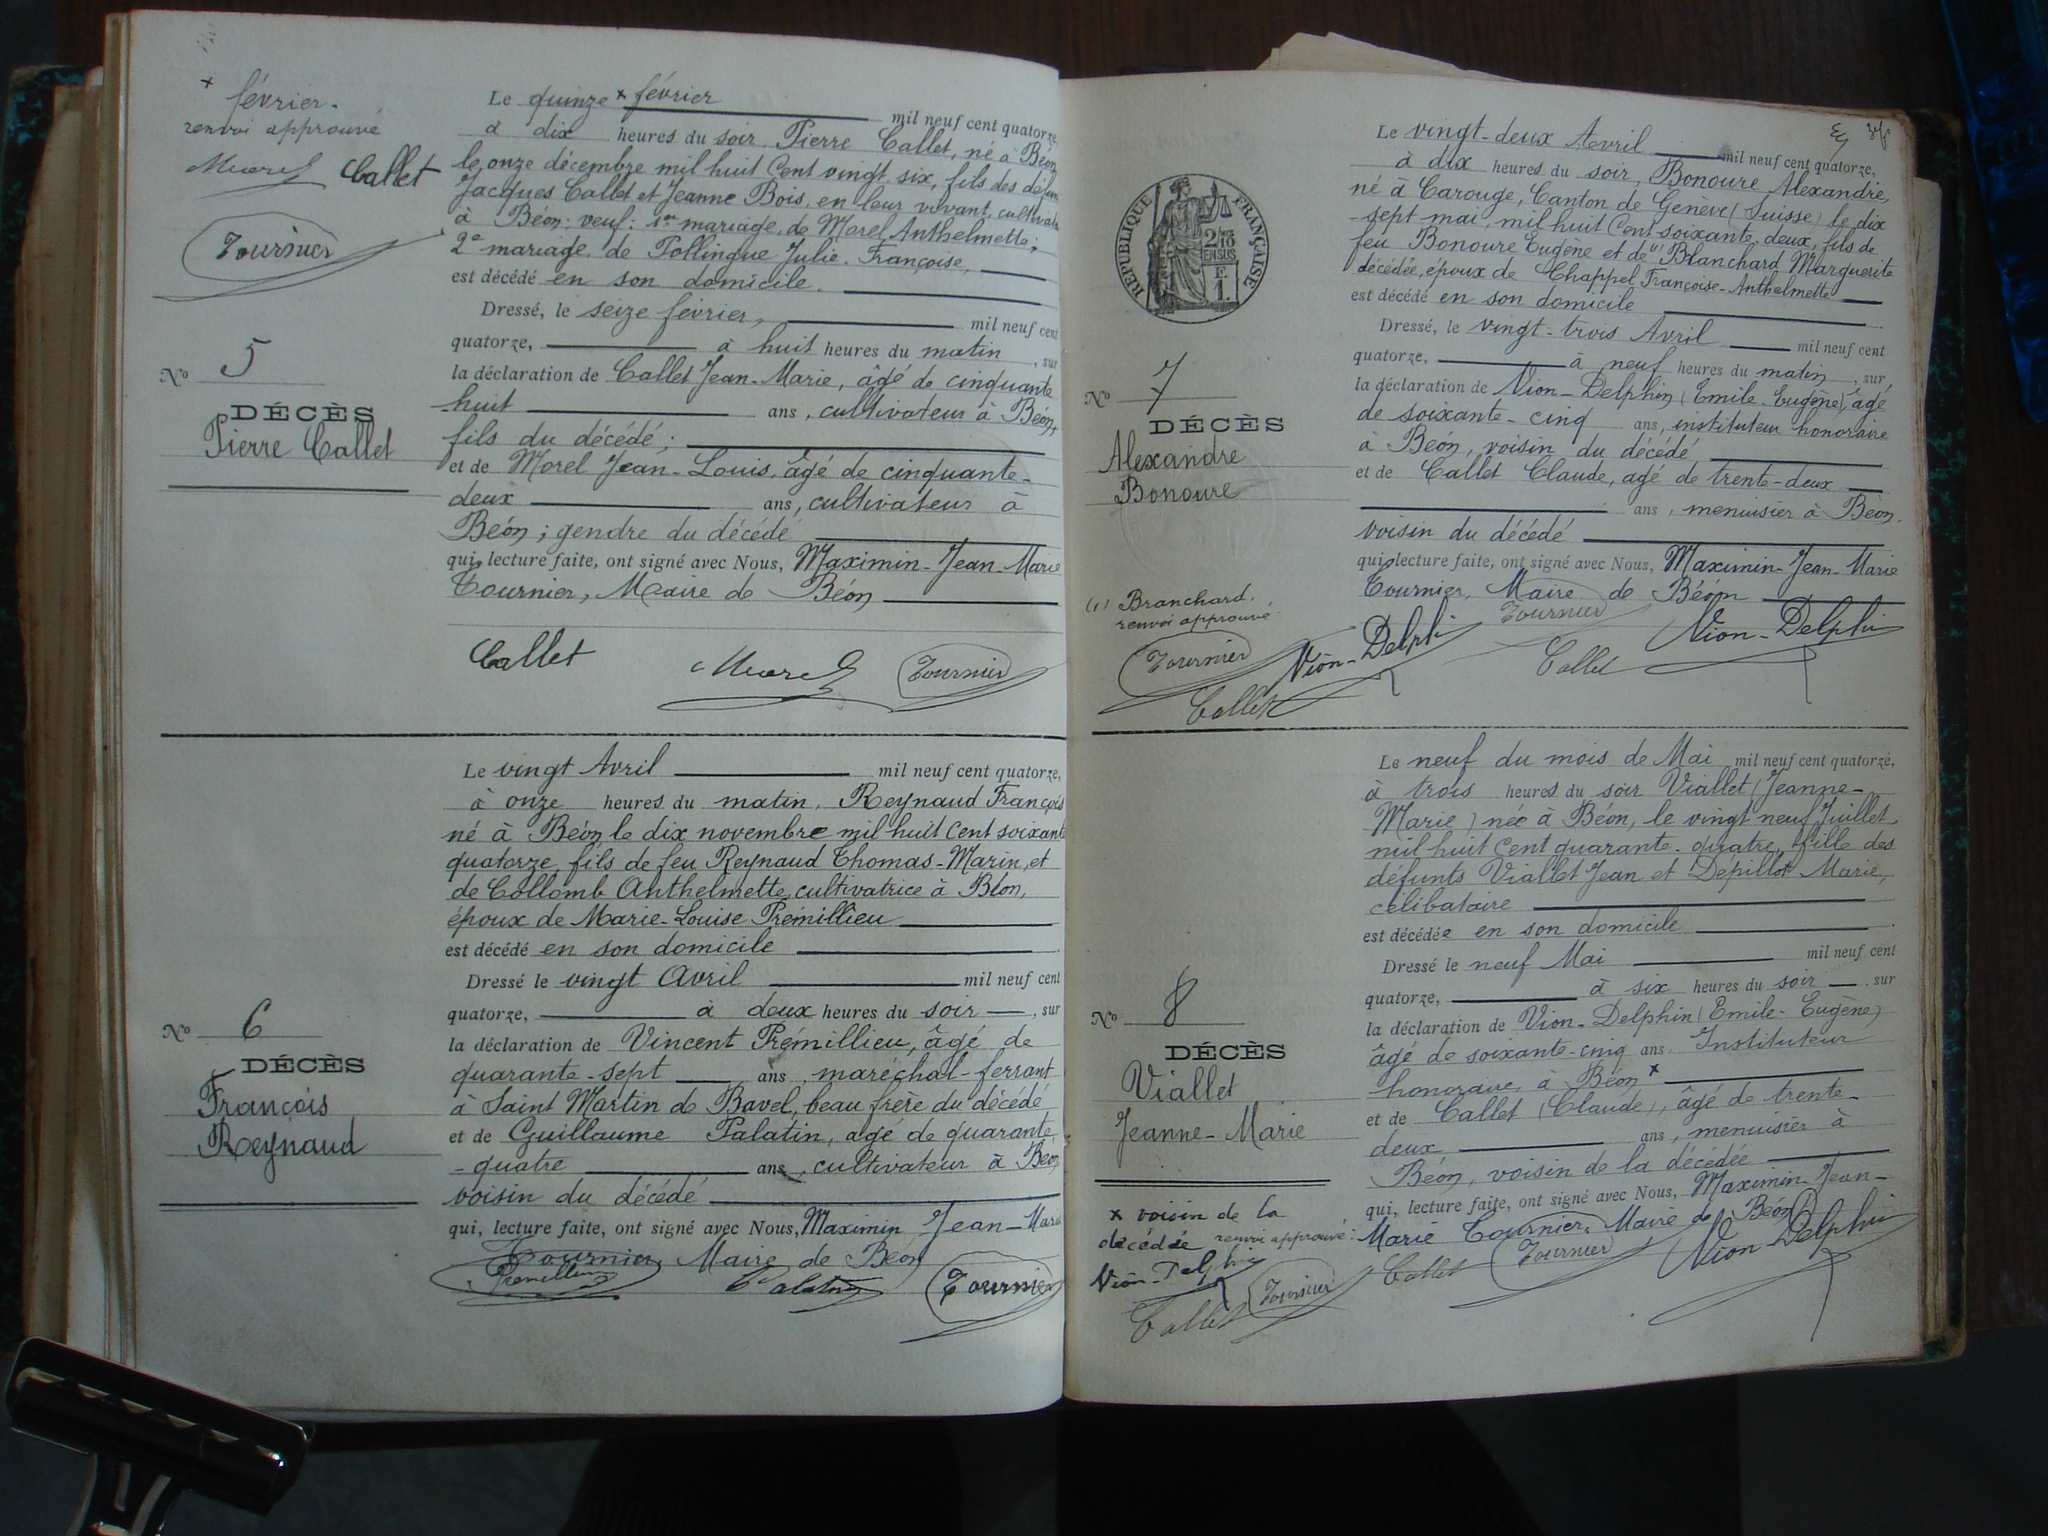 + février.
renvoi approuvé
Morel Callet
Tournier
Le quinze + février mil neuf cent quatorze,
à dix heures du soir Pierre Callet, né à Béon
le onze décembre mil huit cent vingt six, fils des défun
Jacques Callet et Jeanne Bois, en leur vivant, cultivate
à Béon: veuf: 1er mariage, de Morel Anthelmette;
2e mariage de Pollingue Julie Françoise,
est décédé en son domicile.
Dressé, le seize février, mil neuf cent
quatorze, à huit heures du matin, sur
la déclaration de Callet Jean-Marie, âgé de cinquante
-huit ans, cultivateur à Béon,
fils du décédé;
et de Morel Jean-Louis, âgé de cinquante-
deux ans, cultivateur à
Béon; gendre du décédé
qui, lecture faite, ont signé avec Nous, Maximin-Jean-Marie
Tournier, Maire de Béon
Callet Morel Tournier
No 5
DÉCÈS
Pierre Callet
Le vingt Avril mil neuf cent quatorze,
à onze heures du matin, Reynaud François
né à Béon le dix novembre mil huit cent soixante
quatorze, fils de feu Reynaud Thomas-Marin, et
de Collomb Anthelmette, cultivatrice à Béon,
époux de Marie-Louise Prémillieu
est décédé en son domicile
Dressé le vingt Avril mil neuf cent
quatorze, à deux heures du soir, sur
la déclaration de Vincent Prémillieu, âgé de
quarante-sept ans, maréchal-ferrant
à Saint Martin de Bavel, beau frère du décédé
et de Guillaume Palatin, agé de quarante
-quatre ans, cultivateur à Béon
voisin du décédé
qui, lecture faite, ont signé avec Nous, Maximin Jean-Marie
Tournier Maire de Béon
Prémillieu Palatin Tournier
No 6
DÉCÈS
François
Reynaud
RÉPUBLIQUE FRANÇAISE
2/10 EN SUS
1 F.
Le vingt-deux Avril mil neuf cent quatorze,
à dix heures du soir, Bonoure Alexandre,
né à Carouge, Canton de Genève (Suisse) le dix
-sept mai, mil huit cent soixante deux, fils de
feu Bonoure Eugène et de (1) Blanchard Marguerite
décédée, époux de Chappel Françoise-Anthelmette
est décédé en son domicile
Dressé, le vingt-trois Avril mil neuf cent
quatorze, à neuf heures du matin, sur
la déclaration de Vion-Delphin (Emile-Eugène), âgé
de soixante-cinq ans, instituteur honoraire
à Béon, voisin du décédé,
et de Callet Claude, agé de trente-deux
ans, menuisier à Béon,
voisin du décédé
qui, lecture faite, ont signé avec Nous, Maximin-Jean-Marie
Tournier, Maire de Béon
Tournier Vion-Delphin
Callet
No 7
DÉCÈS
Alexandre
Bonoure
(1) Branchard.
renvoi approuvé
Tournier Vion-Delphin
Callet
Le neuf du mois de Mai mil neuf cent quatorze,
à trois heures du soir Viallet (Jeanne-
Marie) née à Béon, le vingt neuf Juillet
mil huit cent quarante-quatre, fille des
défunts Viallet Jean et Dépillot Marie,
célibataire
est décédée en son domicile
Dressé le neuf Mai mil neuf cent
quatorze, à six heures du soir, sur
la déclaration de Vion-Delphin (Emile-Eugène)
âgé de soixante-cinq ans Instituteur
honoraire, à Béon x
et de Callet (Claude), âgé de trente-
deux ans, menuisier à
Béon, voisin de la décédée
qui, lecture faite, ont signé avec Nous, Maximin-Jean-
Marie Tournier, Maire de Béon
Callet Tournier Vion Delphin
No 8
DÉCÈS
Viallet
Jeanne-Marie
x voisin de la
décédée renvoi approuvé:
Vion-Delphin
Callet Tournier